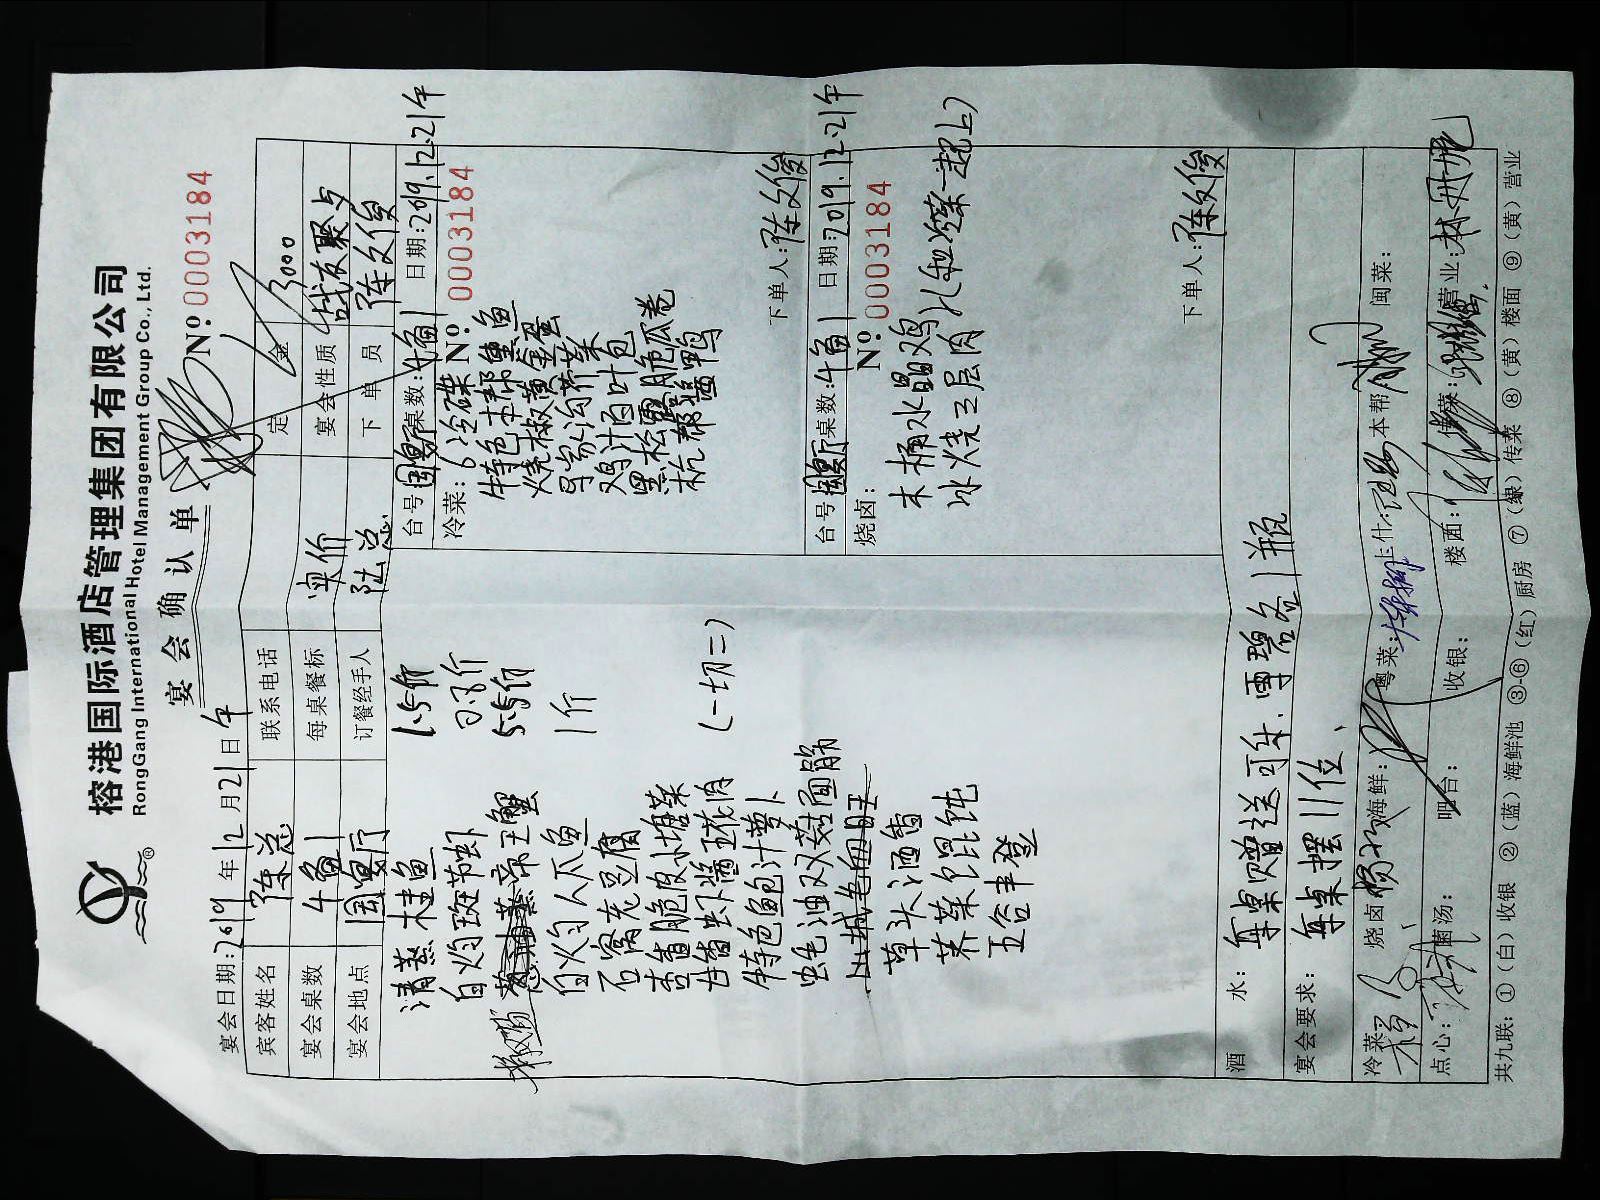 榕港国际酒店管理集团有限公司
RongGang International Hotel Management Group Co., Ltd.
宴会确认单
№ 0003184
宴会日期: 2019 年 12 月 21 日 午
宾客姓名 陈总 联系电话 定金 3000
宴会桌数 4桌 每桌餐标 实价 宴会性质 战友聚会
宴会地点 国宴厅 订餐经手人 陆总 下单员 陈文俊
清蒸桂鱼 1.5斤
白灼斑节虾 0.8斤
蒸帝王蟹 5.5斤
白灼 1斤
石窝老豆腐
杏香脆皮小塘菜
古香虾酱五花肉 (一切二)
特色鲍汁萝卜
蚝油双菇面筋
草头酒香
荠菜馄饨
五谷丰登
台号 国宴厅 桌数: 4桌 日期: 2019.12.21午
冷菜: № 0003184
6冷碟
特色本帮熏鱼
烧椒黄金蛋
鸡汁百叶包
黑松露脆瓜卷
杭帮酱鸭
下单人: 陈文俊
台号 国宴厅 桌数: 4桌 日期: 2019.12.21午
烧卤: № 0003184
木桶水晶鸡
冰烧三层肉 (和冷菜一起上)
下单人: 陈文俊
酒水: 每桌赠送可乐、雪碧各1瓶
宴会要求: 每桌摆11位、
冷菜: 烧卤: 海鲜: 粤菜: 上什: 本帮: 闽菜:
点心: 菌汤: 吧台: 收银: 楼面: 传菜: 营业:
共九联: ①(白)收银 ②(蓝)海鲜池 ③-⑥(红)厨房 ⑦(绿)传菜 ⑧(黄)楼面 ⑨(黄)营业